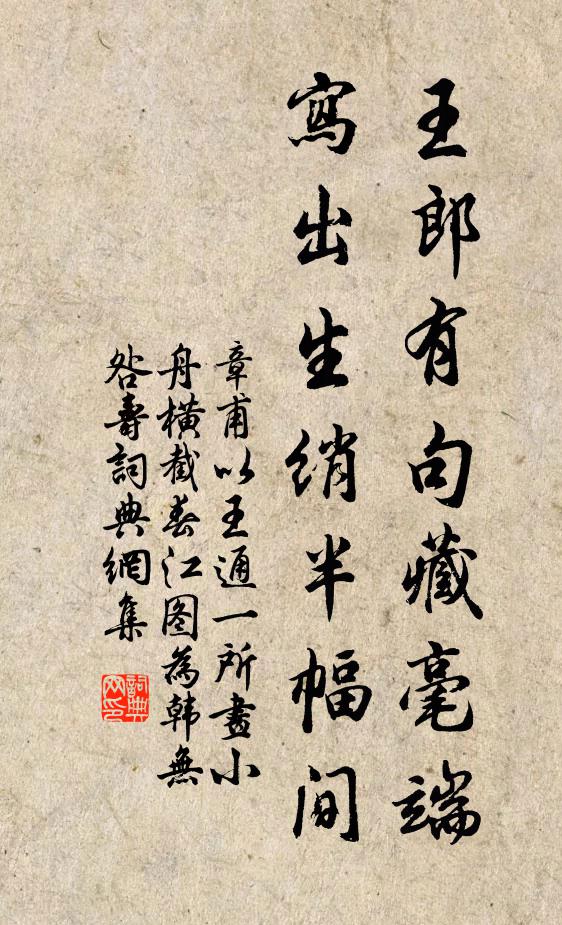 王郎有句藏毫端
寫出生綃半幅間
章甫以王通一所畫小
舟橫截春江图為韩無
咎壽詞典網集
詞典
网印